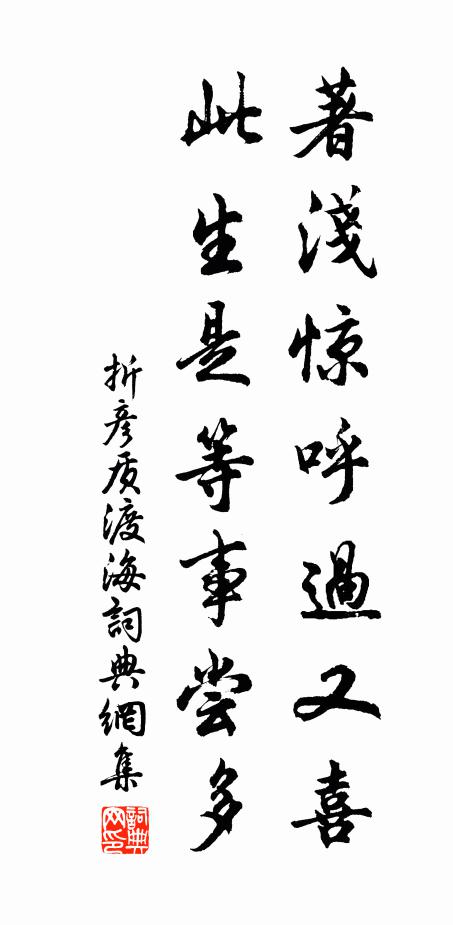 著淺惊呼過又喜
此生是等事尝多
折彦质渡海詞典網集
詞典
网印